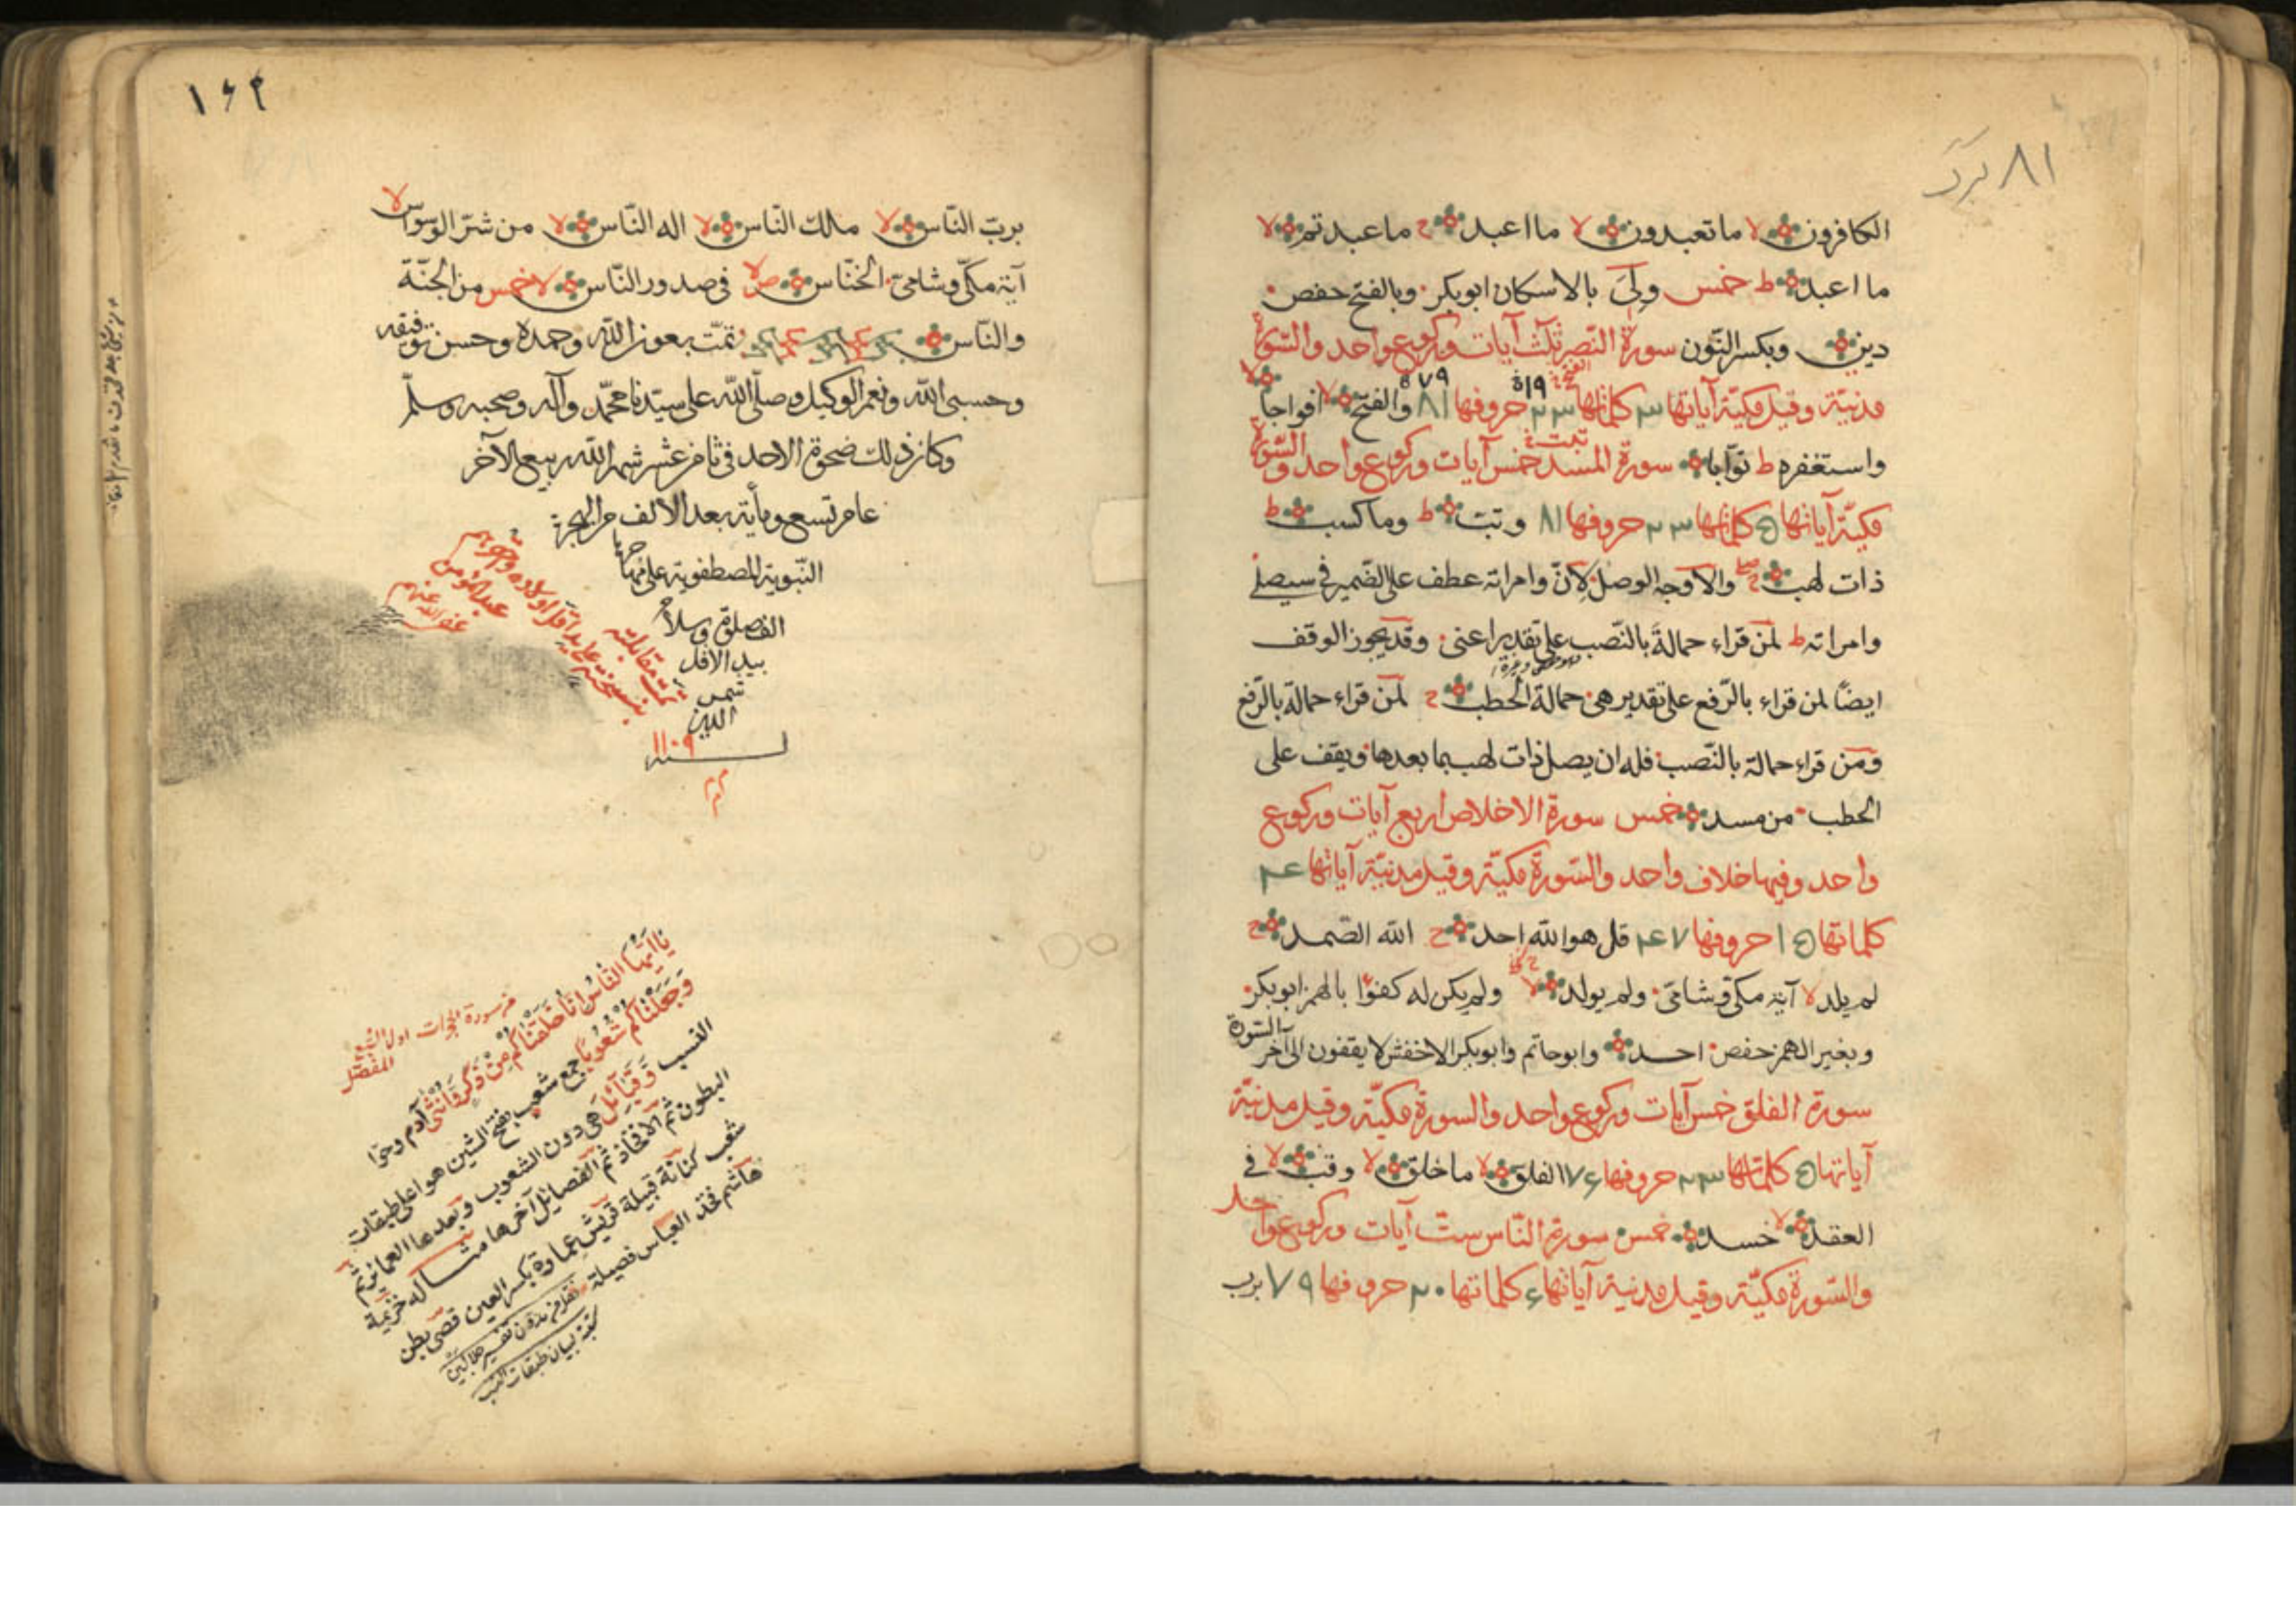 ٨١
الكافرون لا ما تعبدون لا ما اعبد ج ما عبدتم لا
ما اعبد ط خمس ولى بالاسكان ابوبكر وبالفتح حفص
دين وبكسر النّون سورة النّصر ثلث آيات وركوع واحد والسّورة
مدنيّة وقيل مكيّة آياتها ٣ كلماتها ٢٣ حروفها ٨١ والفتح لا افواجا لا
٧٩
واستغفره ط توّابا سورة المسد خمس آيات وركوع واحد والسّورة
تبّت
مكيّة آياتها ٥ كلماتها ٢٣ حروفها ٨١ وتبّ ط وما كسب ط
ذات لهب ج والاوجه الوصل لانّ وامراته عطف على الضّمير في سيصلى
وامراته ط لمن قراء حمالة بالنّصب على تقدير اعنى وقد يجوز الوقف
ايضًا لمن قراء بالرّفع على تقدير هى حمالة الحطب ج لمن قراء حمالة بالرّفع
ومن قراء حمالة بالنّصب فله ان يصل ذات لهب بما بعدها ويقف على
الحطب من مسد خمس سورة الاخلاص اربع آيات وركوع
واحد وفيها خلاف واحد والسّورة مكيّة وقيل مدنيّة آياتها ٤
كلماتها ١٥ حروفها ٤٧ قل هو الله احد ج الله الصّمد ج
لم يلد لا آية مكّى وشامى ولم يولد لا ولم يكن له كفؤا بالهمز ابوبكر
وبغير الهمز حفص احد وابوحاتم وابوبكر الاخفش لا يقفون الى آخر السّورة
سورة الفلق خمس آيات وركوع واحد والسورة مكيّة وقيل مدنيّة
آياتها ٥ كلماتها ٢٣ حروفها ٧٦ الفلق لا ما خلق لا وقب لا فى
العقد لا حسد خمس سورة النّاس ستّ آيات وركوع واحد
والسّورة مكيّة وقيل مدنية آياتها ٦ كلماتها ٢٠ حروفها ٧٩ برب
١٦٢
بربّ النّاس لا ملك النّاس لا اله النّاس لا من شرّ الوسواس لا
آية مكّى وشامىّ الخنّاس فى صدور النّاس لا خمس من الجنّة
والنّاس تمّت بعون الله وحمده وحسن توفيقه
وحسبى الله ونعم الوكيل وصلّى الله على سيّدنا محمّد وآله وصحبه وسلّم
وكان ذلك ضحوة الاحد فى ثامن عشر شهر الله ربيع الآخر
عام تسع ومأية بعد الالف من الهجرة
النّبوية المصطفوية على مهاجرها
الف صلوة وسلام
بيد الاقل
شمس
الدين
سنه ١١٠٩
تمت مقابلته
عبد المؤمن
عفى الله عنهم
من سورة الحجرات اول السّبع
المفصّل
يَا اَيُّهَا النَّاسُ اِنَّا خَلَقْنَاكُمْ مِنْ ذَكَرٍ وَاُنْثٰى آدم وحوّا
وَجَعَلْنَاكُمْ شُعُوبًا جمع شعب بفتح الشين هو اعلى طبقات
النسب وَقَبَآئِلَ هى دون الشعوب وبعدها العماير ثم
البطون ثم الافخاذ ثم الفصائل آخرها مثاله خزيمة
شعب كنانة قبيلة قريش عمارة بكسر العين قصى بطن
هاشم فخذ العباس فصيلة
تفسير جلالين
لبيان طبقات النسب